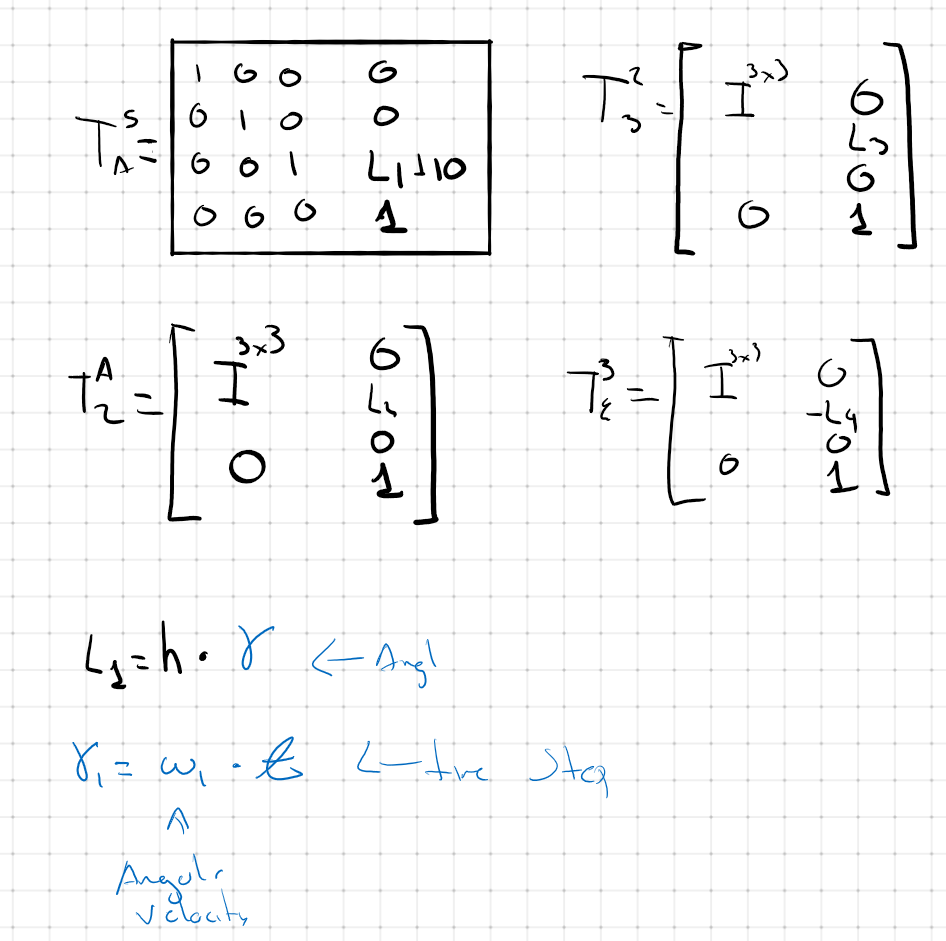 T_A^S = [ 1 0 0 0
0 1 0 0
0 0 1 L_1+10
0 0 0 1 ]
T_3^2 = [ I^{3x3} 0
L_3
0
0 1 ]
T_2^A = [ I^{3x3} 0
0
0 1 ]
T^3 = [ I^{3x3} 0
-L_4
0
0 1 ]
L_1 = h · γ ← Angl
γ_1 = ω_1 · t ←
^
Angulr
velocity